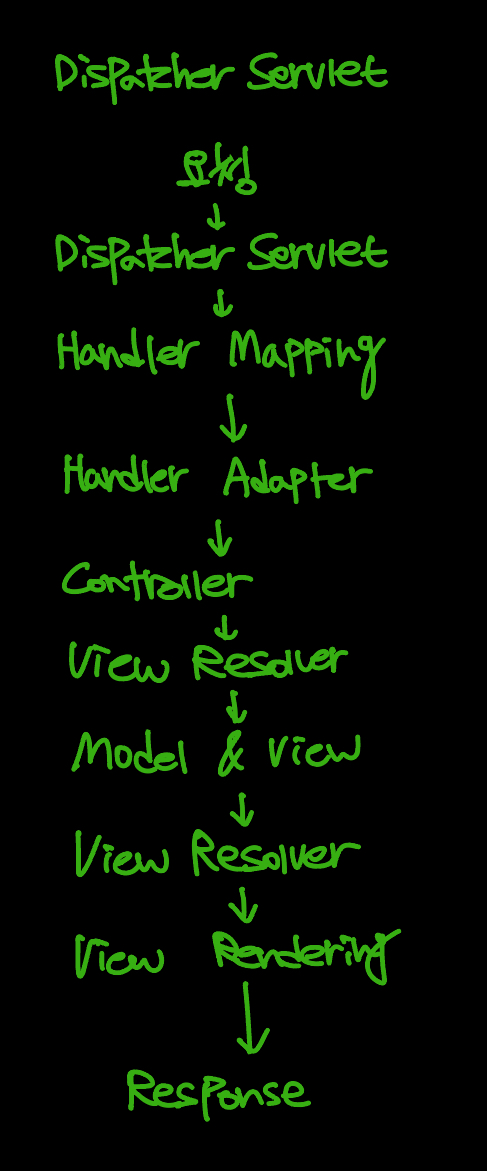 Dispatcher Servlet
요청
↓
Dispatcher Servlet
↓
Handler Mapping
↓
Handler Adapter
↓
Controller
↓
View Resolver
↓
Model & View
↓
View Resolver
↓
View Rendering
↓
Response